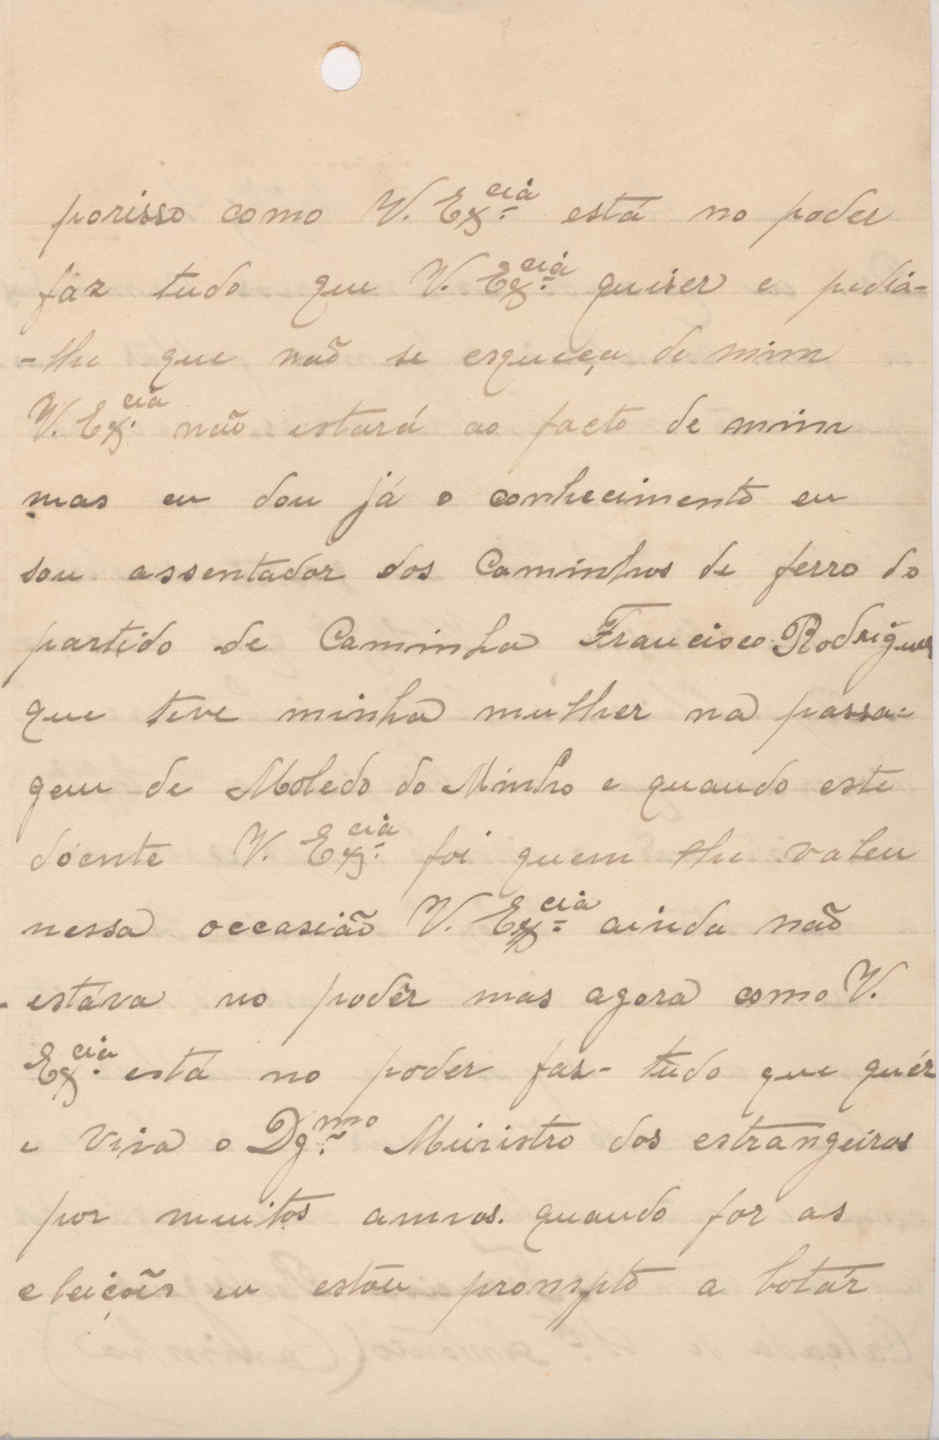 porisso como V. Ex.cia está no poder
faz tudo que V. Ex.cia quiser e pedia-
-lhe que não se esqueça de mim
V. Ex.cia não estará ao facto de mim
mas eu dou já o conhecimento eu
sou assentador dos Caminhos de ferro do
partido de Caminha Francisco Rodrigues
que teve minha mulher na passa-
gem de Moledo do Minho e quando este
doente V. Ex.cia foi quem lhe valeu
nessa occasião V. Ex.cia ainda não
estáva no podêr mas agora como V.
Ex.cia está no poder faz- tudo que quér
e viva o Dg.mo Ministro dos estrangeiros
por muitos annos. quando for as
eleições eu estou prompto a botár